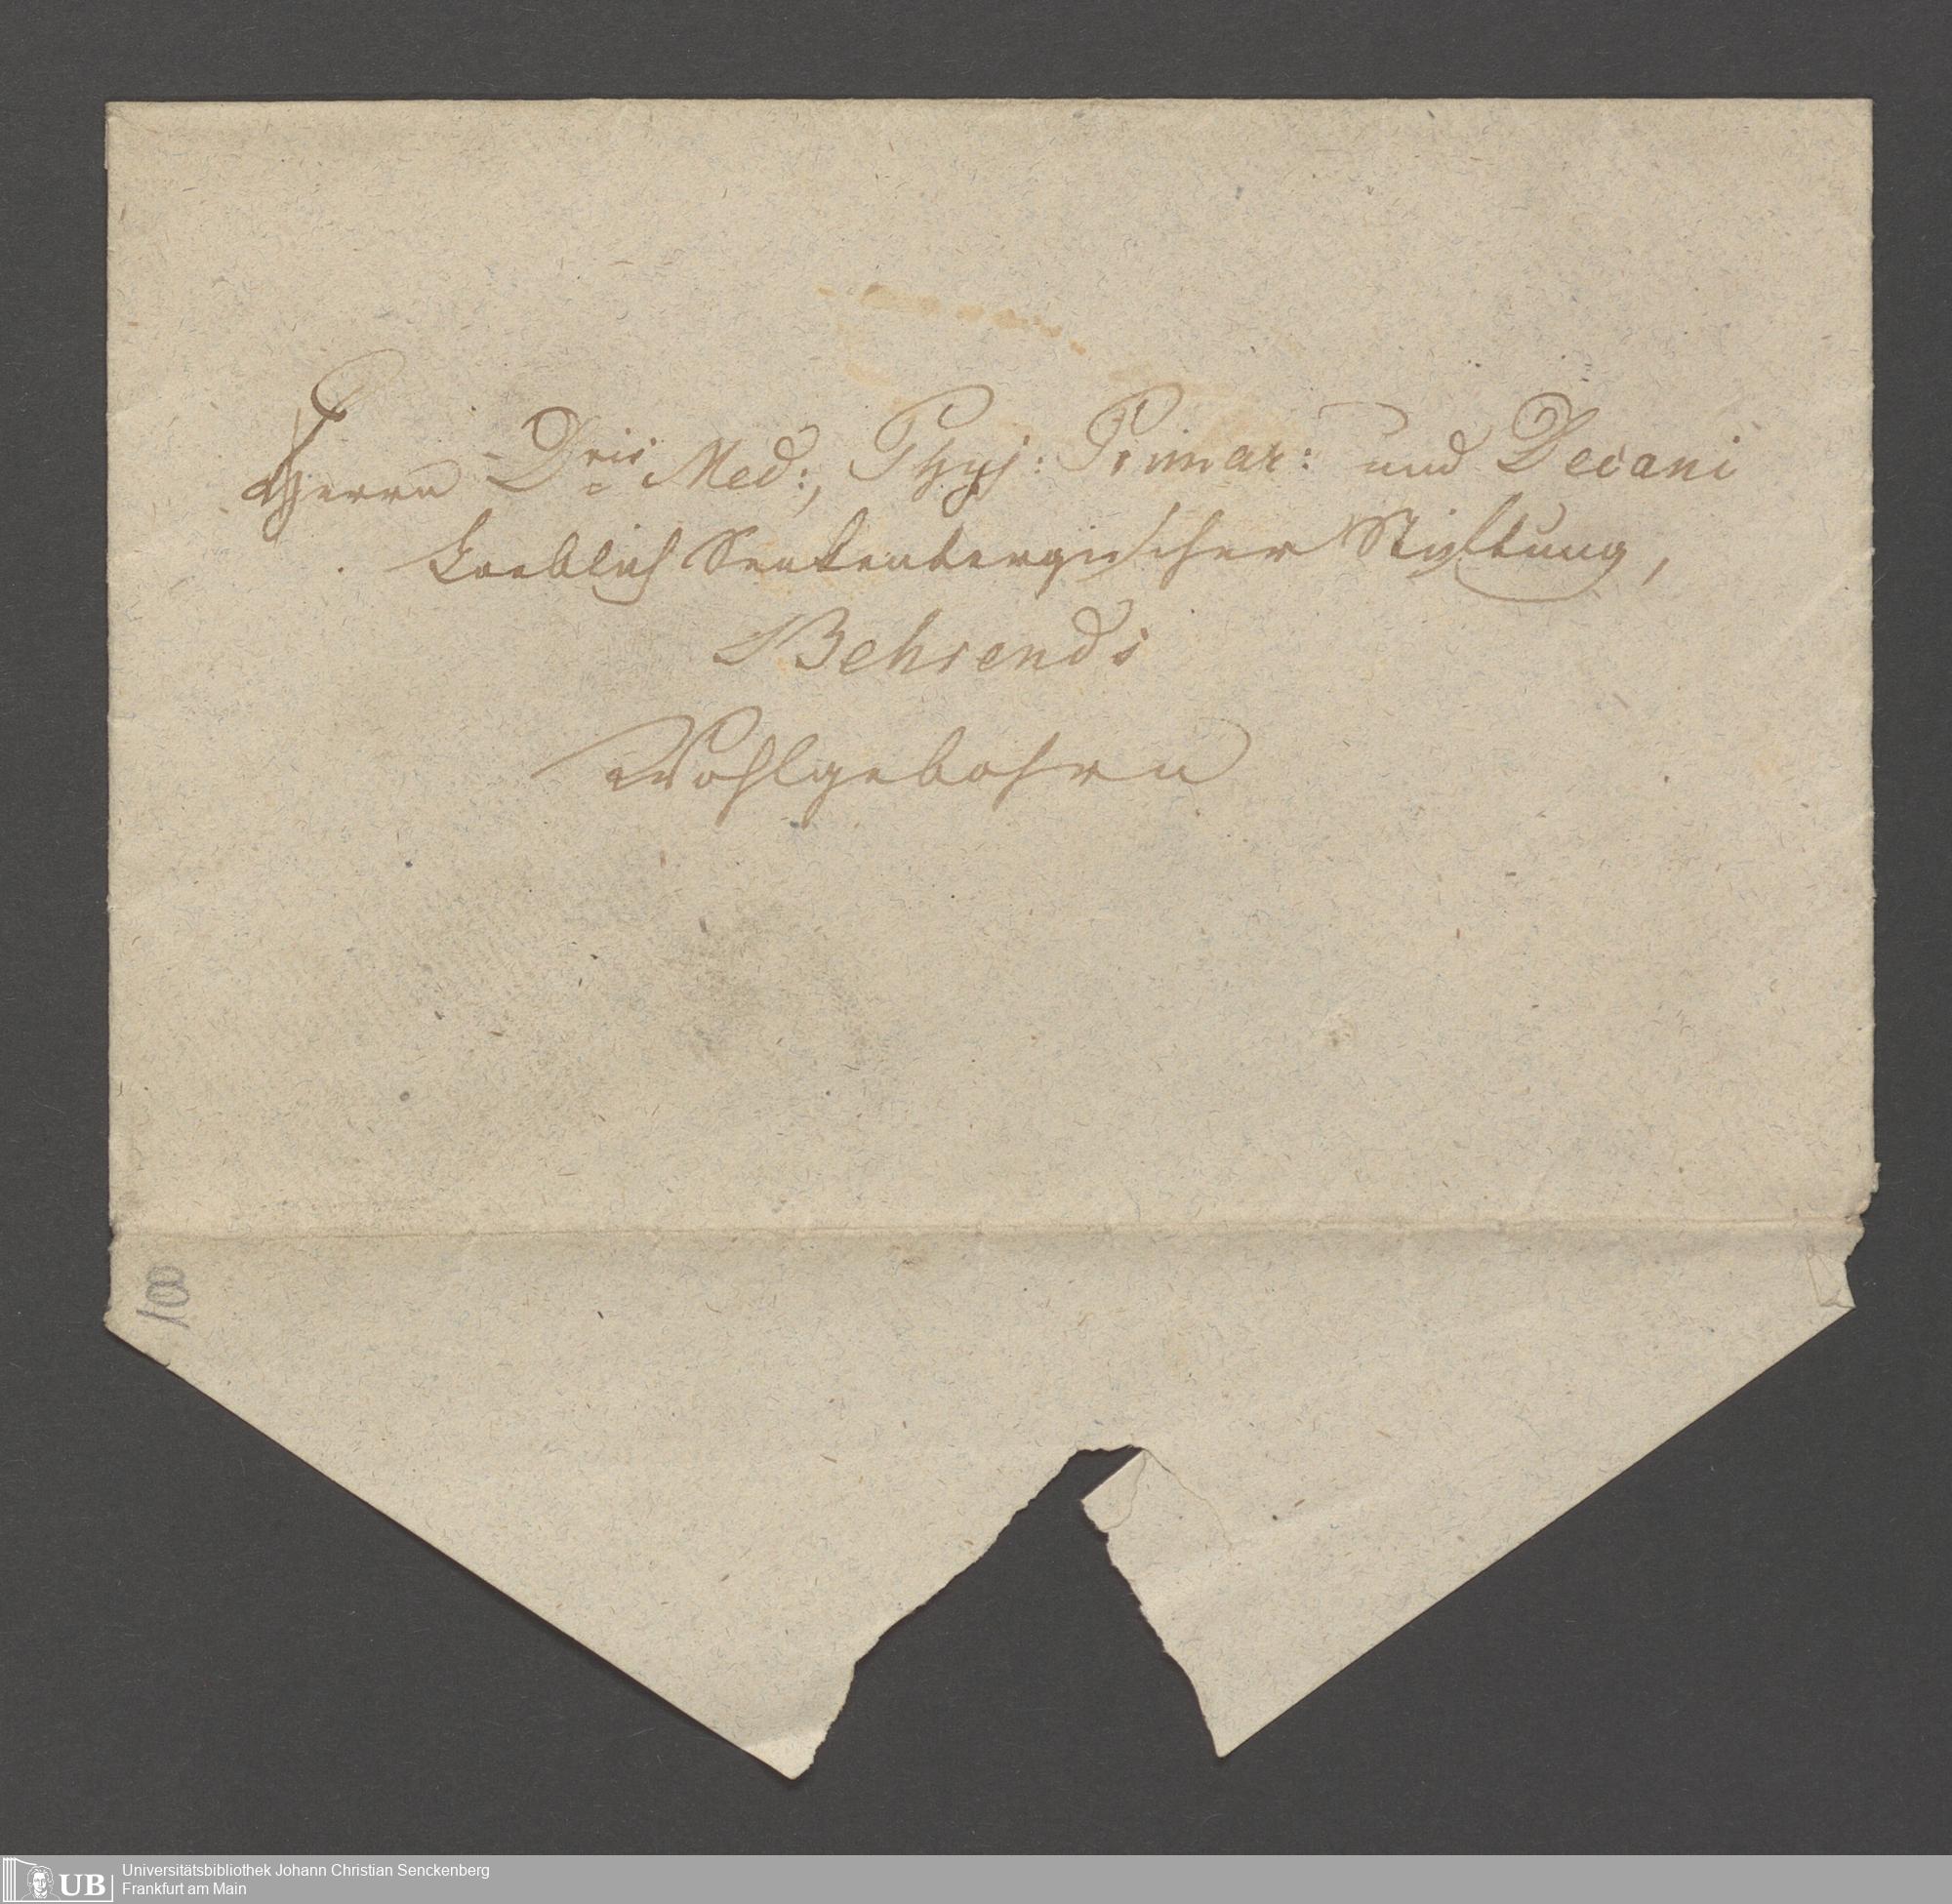 Herrn Dris Med:, Phys: Primar: und Decani
Loeblich Senkenbergischer Stiftung,
Behrends
Wohlgebohrn
100
UB
Universitätsbibliothek Johann Christian Senckenberg
Frankfurt am Main